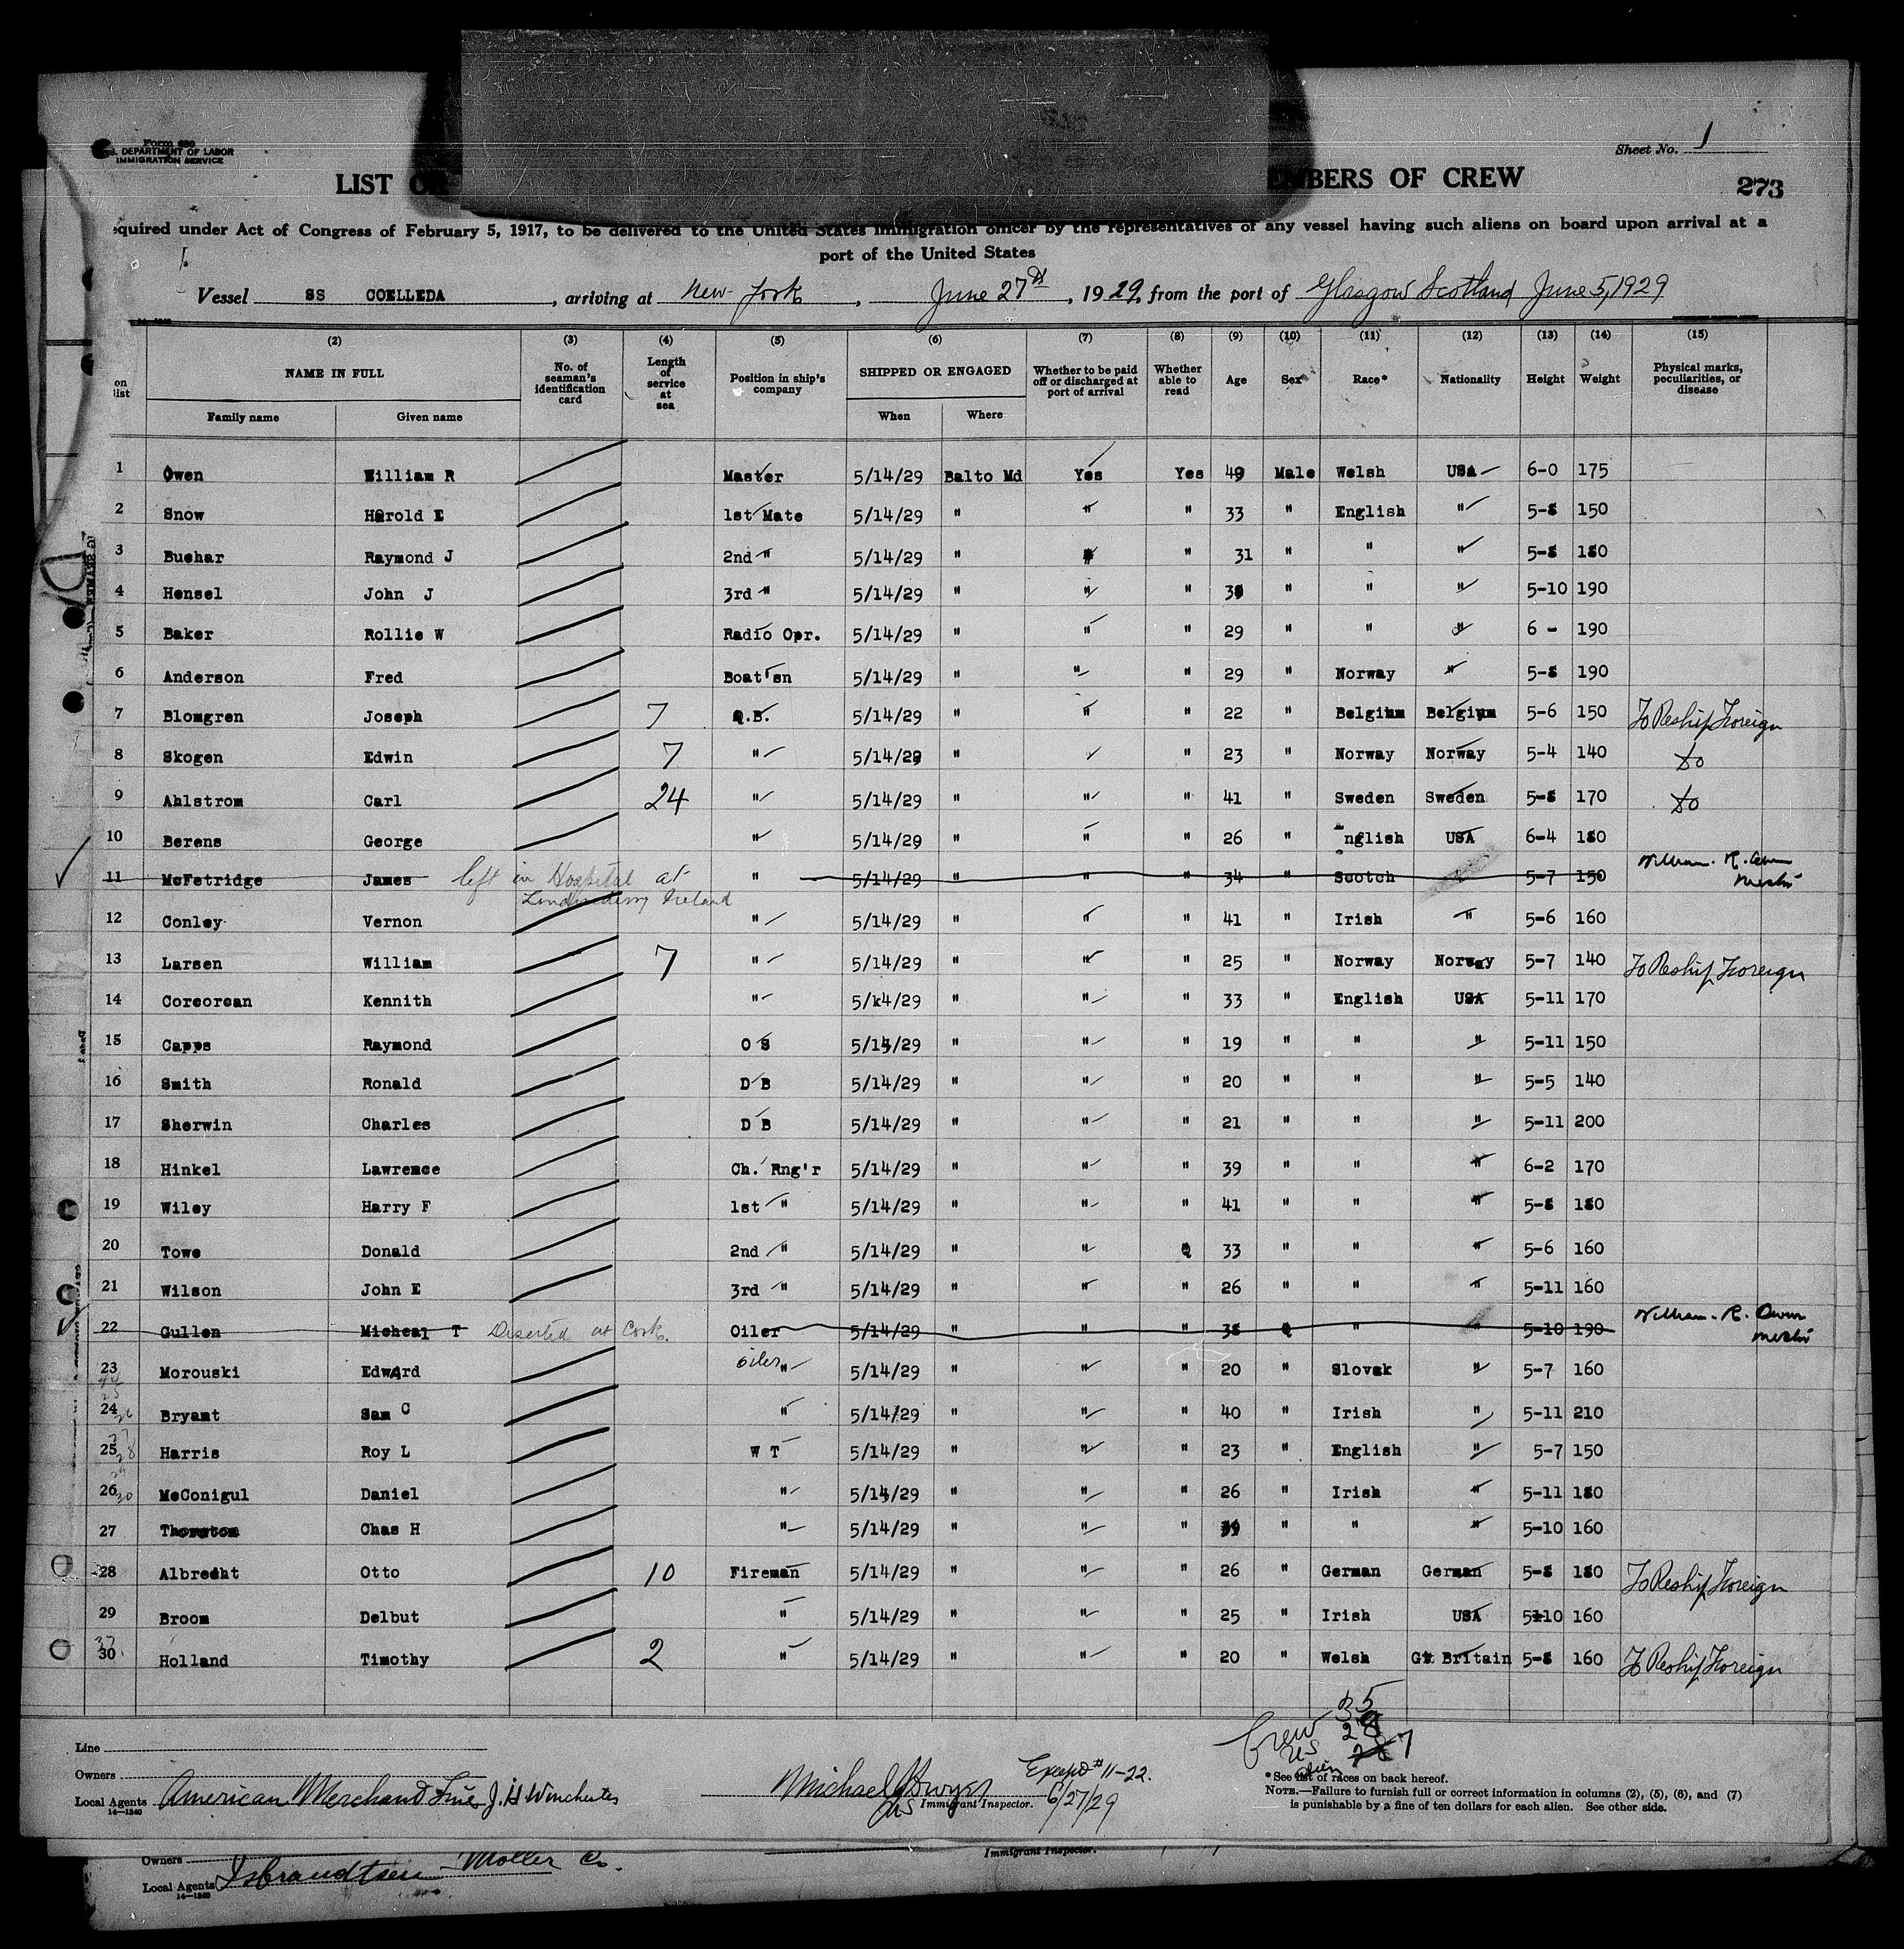 Form 680
U.S. DEPARTMENT OF LABOR
IMMIGRATION SERVICE
Sheet No. 1
LIST OF MEMBERS OF CREW
273
quired under Act of Congress of February 5, 1917, to be delivered to the United States immigration officer by the representatives of any vessel having such aliens on board upon arrival at a
port of the United States
Vessel SS COELLEDA, arriving at New York, June 27th, 1929, from the port of Glasgow Scotland June 5, 1929
(2) (3) (4) (5) (6) (7) (8) (9) (10) (11) (12) (13) (14) (15)
on list NAME IN FULL Family name Given name No. of seaman's identification card Length of service at sea Position in ship's company SHIPPED OR ENGAGED When Where Whether to be paid off or discharged at port of arrival Whether able to read Age Sex Race* Nationality Height Weight Physical marks, peculiarities, or disease
1 Owen William R Master 5/14/29 Balto Md Yes Yes 49 Male Welsh USA 6-0 175
2 Snow Harold E 1st Mate 5/14/29 " " " 33 " English " 5-8 150
3 Buehar Raymond J 2nd " 5/14/29 " " " 31 " " " 5-8 180
4 Hensel John J 3rd " 5/14/29 " " " " " " 5-10 190
5 Baker Rollie W Radio Opr. 5/14/29 " " " 29 " " " 6 - 190
6 Anderson Fred Boat'sn 5/14/29 " " " 29 " Norway " 5-8 190
7 Blomgren Joseph 7 Q.B. 5/14/29 " " " 22 " Belgium Belgium 5-6 150 To Reship Foreign
8 Skogen Edwin 7 " 5/14/29 " " 23 " Norway Norway 5-4 140 Do
9 Ahlstrom Carl 24 " 5/14/29 " " " 41 " Sweden Sweden 5-8 170 Do
10 Berens George " 5/14/29 " " " 26 " English USA 6-4 180
11 McFetridge James left in Hospital at Londonderry Ireland " 5/14/29 " " " 34 " Scotch 5-7 150 William. R. Owen Master
12 Conley Vernon " 5/14/29 " " " 41 " Irish " 5-6 160
13 Larsen William 7 " 5/14/29 " " " 25 " Norway Norway 5-7 140 To Reship Foreign
14 Corcorcan Kennith " 5/k4/29 " " " 33 " English USA 5-11 170
15 Capps Raymond O S 5/14/29 " " " 19 " " " 5-11 150
16 Smith Ronald D B 5/14/29 " " " 20 " " " 5-5 140
17 Sherwin Charles D B 5/14/29 " " " 21 " " " 5-11 200
18 Hinkel Lawrence Ch. Rng'r 5/14/29 " " " 39 " " " 6-2 170
19 Wiley Harry F 1st " 5/14/29 " " " 41 " " " 5-8 180
20 Towe Donald 2nd " 5/14/29 " " 33 " " " 5-6 160
21 Wilson John E 3rd " 5/14/29 " " " 26 " " " 5-11 160
22 Gullen Micheal T Deserted at Cork. Oiler 5/14/29 " " " 38 " " 5-10 190 William. R. Owen Master
23 Morouski Edward oiler " 5/14/29 " " " 20 " Slovak " 5-7 160
24 Bryant Sam C " 5/14/29 " " " 40 " Irish " 5-11 210
25 Harris Roy L W T 5/14/29 " " " 23 " English " 5-7 150
26 McConigul Daniel " 5/14/29 " " " 26 " Irish " 5-11 180
27 Thornton Chas H " 5/14/29 " " " " " " 5-10 160
28 Albrecht Otto 10 Fireman 5/14/29 " " " 26 " German German 5-8 180 To Reship Foreign
29 Broom Delbut " 5/14/29 " " " 25 " Irish USA 5-10 160
30 Holland Timothy 2 " 5/14/29 " " " 20 " Welsh Gt Britain 5-8 160 To Reship Foreign
Crew 35
US 28
alien 7
Line
Owners
Local Agents American Merchant Line J. H Winchester
14-1240
Michael Dwyer
Immigrant Inspector.
Except # 11-22.
6/27/29
* See list of races on back hereof.
NOTE.—Failure to furnish full or correct information in columns (2), (5), (6), and (7)
is punishable by a fine of ten dollars for each alien. See other side.
Immigrant Inspector.
Owners
Local Agents Isbrandtsen Moller Co.
14-1240